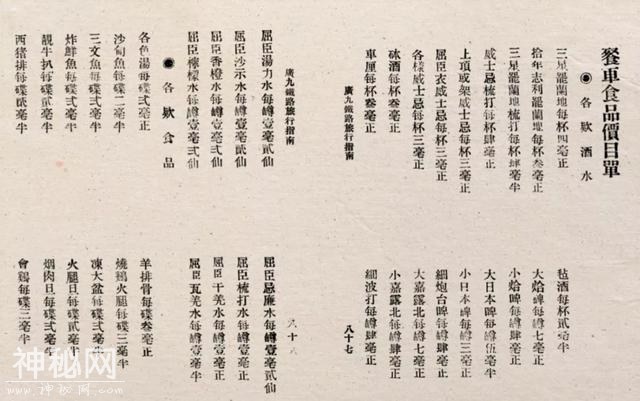 餐車食品價目單
◉各欵酒水
三星罷蘭地每杯四毫正
毡酒每杯貳毫半
拾年志利罷蘭地每杯叁毫正
大蛤啤每罇七毫正
三星罷蘭地梳打每杯肆毫半
小蛤啤每罇肆毫半
威士忌梳打每杯肆毫正
大日本啤每罇伍毫半
上項或架威士忌每杯三毫正
小日本啤每罇三毫正
屈臣衣威士忌每杯三毫正
細炮台啤每罇肆毫正
各樣威士忌每杯三毫正
大嘉露北每罇七毫正
砵酒每杯叁毫正
小嘉露北每罇肆毫正
車厘每杯叁毫正
細波打每罇肆毫正
廣九鐵路旅行指南
八十七
廣九鐵路旅行指南
屈臣湯力水每罇壹毫貳仙
屈臣忌廉水每罇壹毫貳仙
屈臣沙示水每罇壹毫貳仙
屈臣梳打水每罇壹毫正
屈臣香橙水每罇壹毫弍仙
屈臣干羌水每罇壹毫正
屈臣檸檬水每罇壹毫弍仙
屈臣瓦羌水每罇壹毫半
◉各欵食品
各色湯每碟弍毫正
羊排骨每碟叁毫正
沙甸魚每碟二毫半
燒鷄火腿每碟三毫半
三文魚每碟弍毫正
凍大盆每碟弍毫正
炸鮮魚每碟弍毫正
火腿旦每碟貳毫半
靚牛扒每碟弍毫半
烟肉旦每碟弍毫半
西猪排每碟貳毫半
會鷄每碟三毫半
神秘网
WWW.SHENMW.COM